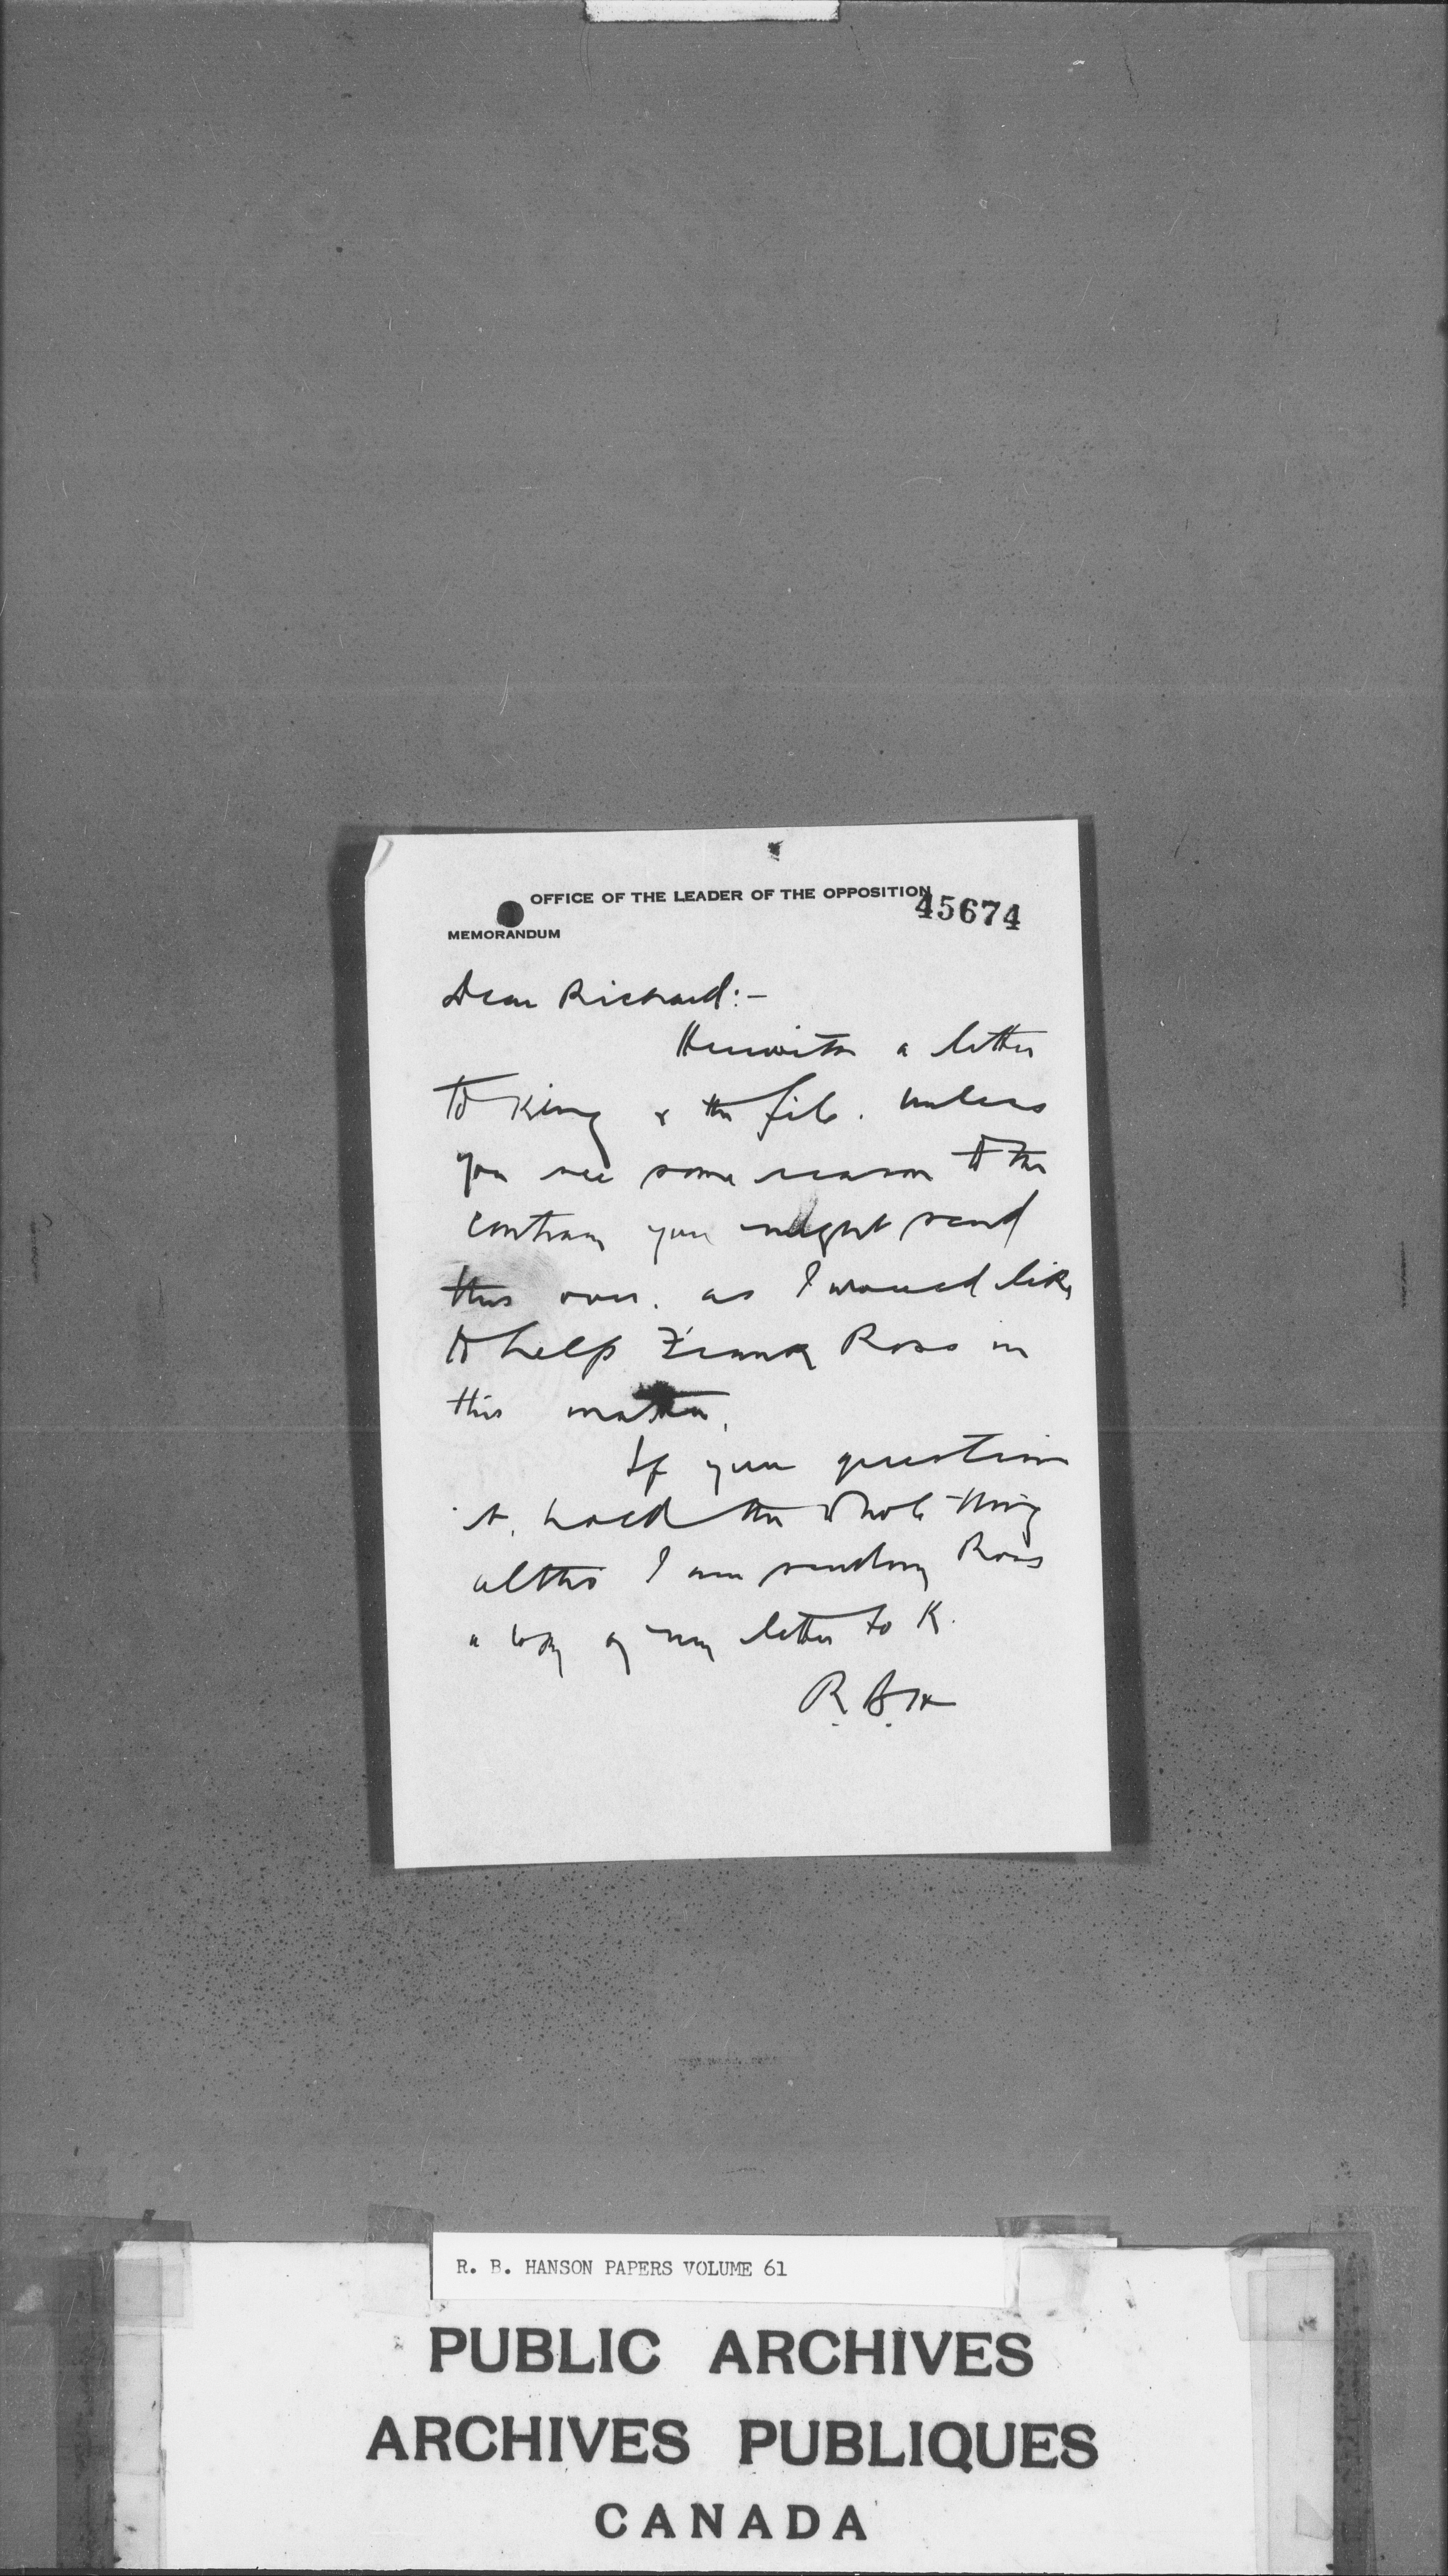 OFFICE OF THE LEADER OF THE OPPOSITION
45674
MEMORANDUM
Dear Richard:-
Herewith a letter
to King & the file. Unless
you see some reason to the
contrary you might send
this over. as I would like
to help Frank Ross in
this matter.
If you question
it, hold the whole thing
altho I am sending Ross
a copy of my letter to K.
R.B.H
R. B. HANSON PAPERS VOLUME 61
PUBLIC ARCHIVES
ARCHIVES PUBLIQUES
CANADA